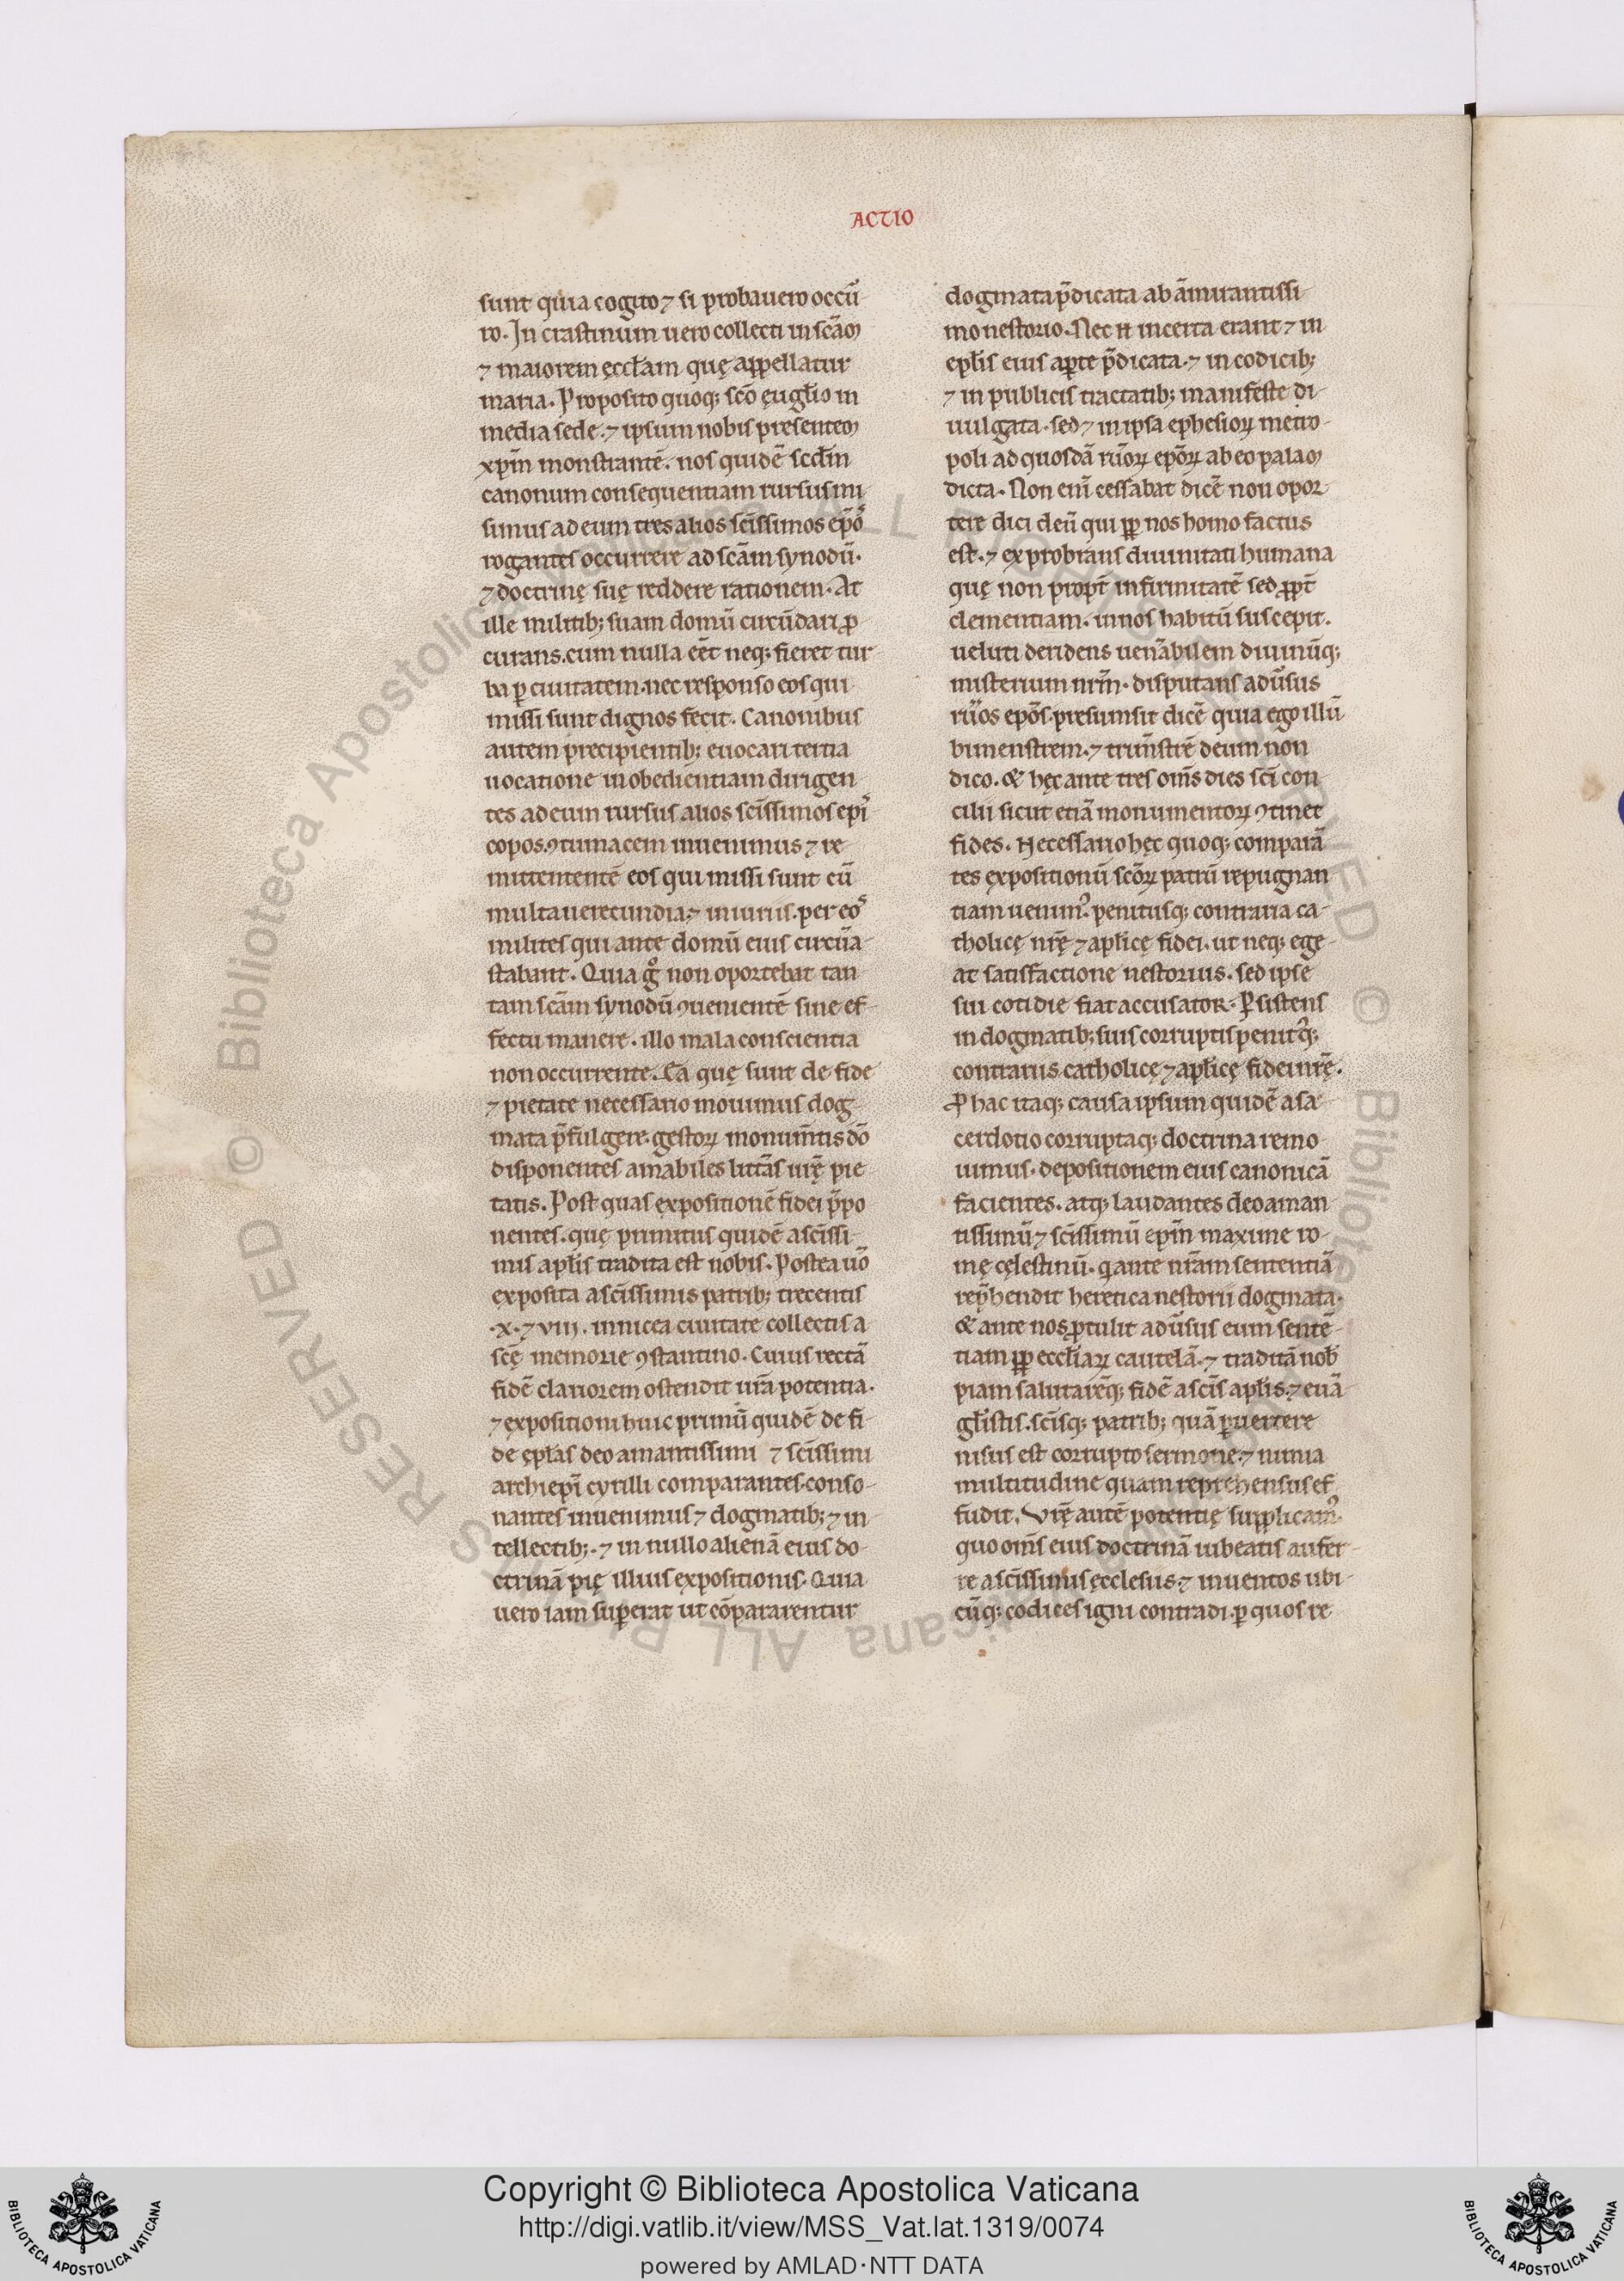 ACTIO
sunt quia cogito ⁊ si probauero occu᷒r
ro. In crastinum uero collecti in scãm
⁊ maiorem ęccłam quę appellatur
maria. Proposito quoq; scõ ęuglĩo in
media sede. ⁊ ipsum nobis presentem
xpm̃ monstrantẽ. nos quidẽ scđm
canonum consequentiam rursus mi
simus ad eum tres alios scĩssimos ep̃os
rogantes occurrere ad scãm synodũ.
⁊ doctrinę suę reddere rationem. At
ille militib; suam domũ circũdari ꝓ
curans. cum nulla eẽt neq; fieret tur
ba ꝑ ciuitatem. nec responso eos qui
missi sunt dignos fecit. Canonibus
autem precipientib; euocari tertia
uocatione inobedientiam dirigen
tes ad eum rursus alios scĩssimos epĩs
copos. ꝯtumacem inuenimus ⁊ re
mittententẽ eos qui missi sunt cũ
multa uerecundia. ⁊ iniuriis. per eos
milites qui ante domũ eius circũa
stabant. Quia gͦ non oportebat tan
tam scãm synodũ ꝯuenientẽ sine ef
fectu manere. illo mala conscientia
non occurrente. Ea quę sunt de fide
⁊ pietate necessario mouimus dog
mata p̃fulgere. gestoꝝ monum̃tis dõ
disponentes amabiles littãs ur̃ę pie
tatis. Post quas expositionẽ fidei p̃po
nentes. quę primitus quidẽ a scĩssi
mis apłis tradita est nobis. Postea uõ
exposita a scĩssimis patrib; trecentis
.x. ⁊ viii. in nicea ciuitate collectis a
scę̃ memorie ꝯstantino. Cuius rectã
fidẽ clariorem ostendit ur̃a potentia.
⁊ expositioni huic primũ quidẽ de fi
de ępłas deo amantissimi ⁊ scĩssimi
archiepĩ cyrilli comparantes. conso
nantes inuenimus ⁊ dogmatib; ⁊ in
tellectib;. ⁊ in nullo alienã eius do
ctrinã pię illius expositionis. Quia
uero iam superat ut cõpararentur
dogmata p̃dicata ab ãmirantissi
mo nestorio. Nec n̄ incerta erant ⁊ in
epłis eius aꝑte p̃dicata. ⁊ in codicib;
⁊ in publicis tractatib; manifeste di
uulgata. sed ⁊ in ipsa ephesioꝝ metro
poli ad quosdã rũoꝝ epõꝝ ab eo palam
dicta. Non enĩ cessabat dicẽ non opor
tere dici deũ qui ꝓꝑ nos homo factus
est. ⁊ exprobrans diuinitati humana
quę non propt̃ infirmitatẽ sed ꝓpt̃
clementiam. in nos habitũ suscepit.
ueluti deridens uenãbilem diuinũq;
misterium nrm̃. disputans adũsus
rũos epõs. presumsit dicẽ quia ego illũ
bimenstrem. ⁊ trimñstrẽ deum non
dico. & hęc ante tres om̃s dies scĩ con
cilii sicut etiã monumentoꝝ ꝯtinet
fides. Necessario hęc quoq; comparã
tes expositionũ scõꝝ patrũ repugnan
tiam uenim᷒. penitusq; contraria ca
tholicę nrę̃ ⁊ apłicę fidei. ut neq; ege
at satisfactione nestorius. sed ipse
sui cotidie fiat accusator. ꝑsistens
in dogmatib; suis corruptis penit᷒q;
contrarius catholicę ⁊ apłicę fidei nrę̃.
ꝓ hac itaq; causa ipsum quidẽ a sa
cerdotio corruptaq; doctrina remo
uimus. depositionem eius canonicã
facientes. atq; laudantes deo aman
tissimũ ⁊ scĩssimũ epm̃ maxime ro
mę cęlestinũ. q̃ ante nrãm sententiã
rep̃hendit heretica nestorii dogmata.
& ante nos ꝓtulit adũsus eum sentẽ
tiam ꝓꝑ eccłiaꝝ cautelã. ⁊ traditã nob̃
piam salutarẽq; fidẽ a scĩs apłis. ⁊ euã
głistis. scĩsq; patrib; quã ꝑuertere
nisus est corrupto sermone. ⁊ nimia
multitudine quam reprehensus ef
fudit. Vr̃ę autẽ potentię supplicam᷒.
quo om̃s eius doctrinã iubeatis aufer
re a scĩssimis ęcclesiis. ⁊ inuentos ubi
cũq; codices igni contradi. ꝑ quos re
© Biblioteca Apostolica Vaticana ALL RIGHTS RESERVED © Biblioteca Apostolica Vaticana ALL RIGHTS RESERVED
Copyright © Biblioteca Apostolica Vaticana
http://digi.vatlib.it/view/MSS_Vat.lat.1319/0074
powered by AMLAD·NTT DATA
BIBLIOTECA APOSTOLICA VATICANA
BIBLIOTECA APOSTOLICA VATICANA